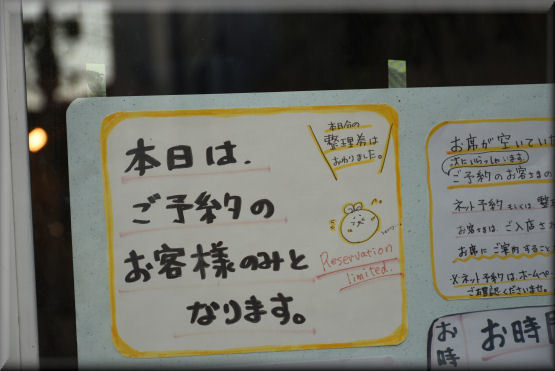 本日は、
ご予約の
お客様のみと
なります。
本日分の
整理券は
おわりました。
Reservation
limited.
お席が空いていた
次にいらっしゃいます
ご予約のお客さまの
ネット予約もしくは整
お客さまは、ご入店さ
お席にご案内すること
※ネット予約は、ホームペー
ご確認くださいませ。
お時
お時間